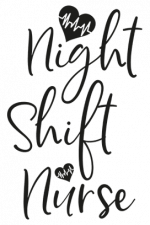 Night
Shift
Nurse